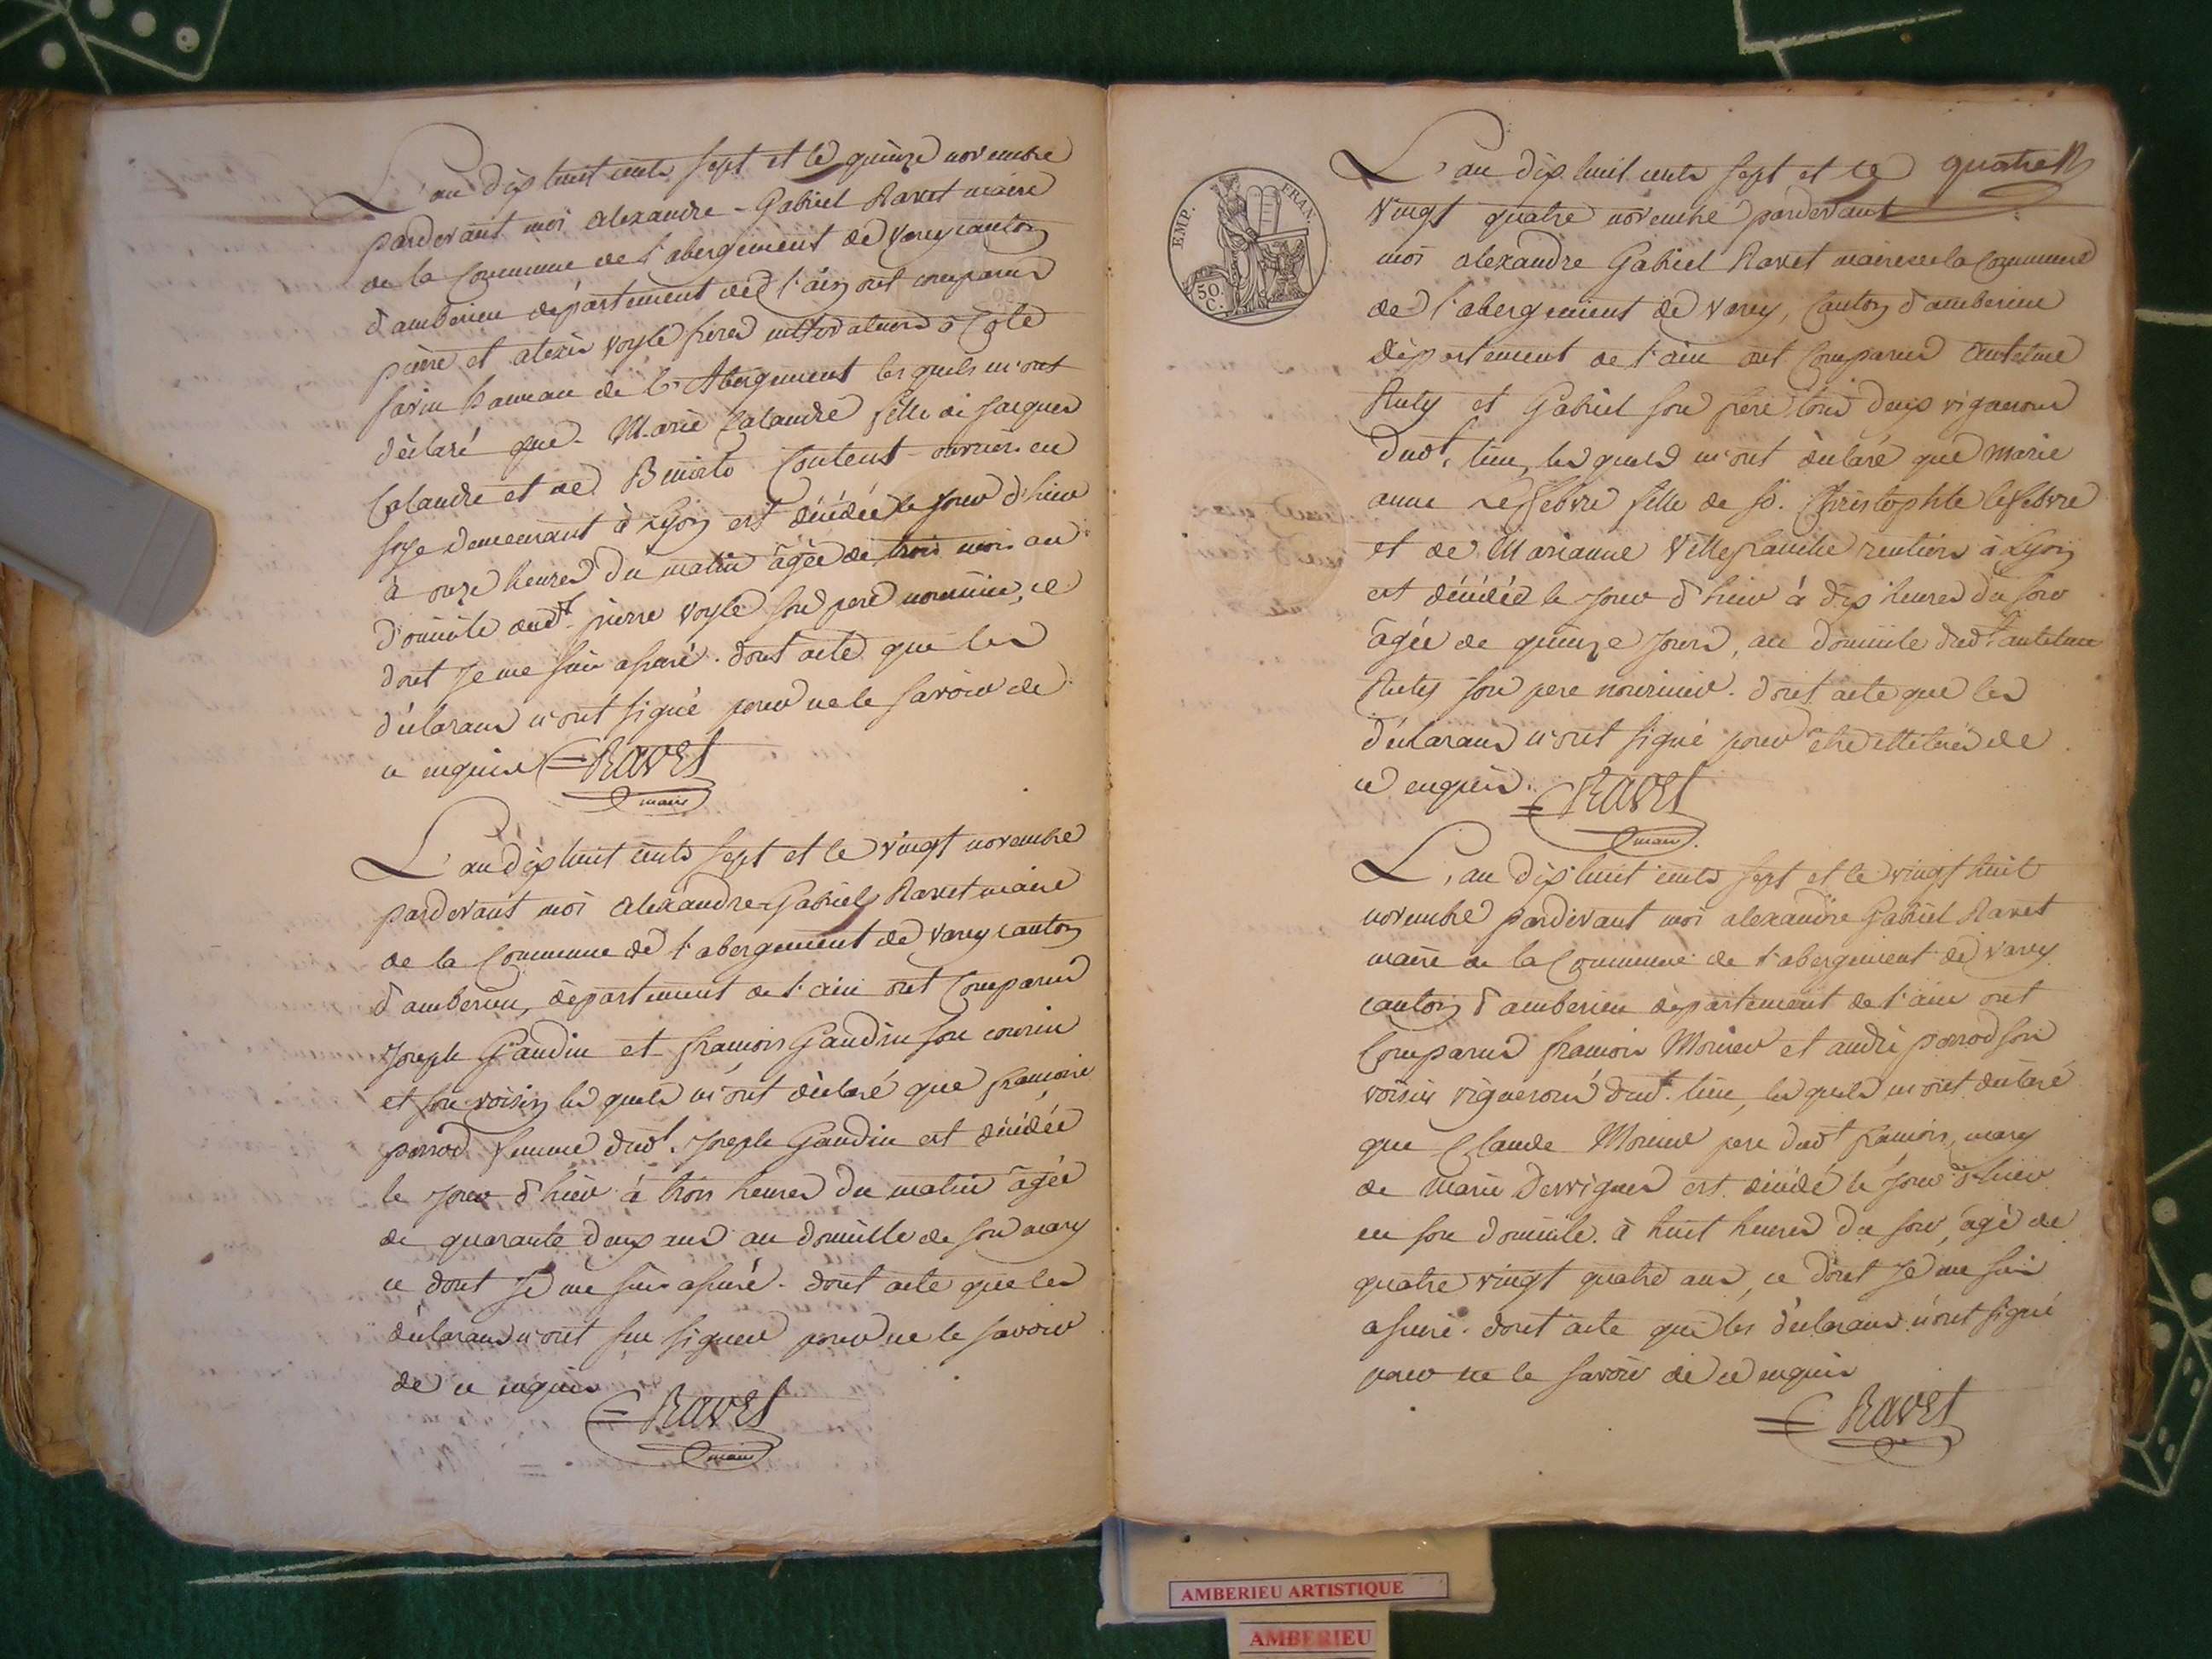 L'an dix huit cents sept et le quinze novembre
pardevant moi alexandre-Gabriel Ravet maire
de la Commune de l'abergement de varey canton
d'amberieu département de l'ain ont comparus
pierre et alexis voyle freres à Côte
savin hameau de l'Abergement lesquels m'ont
déclaré que Marie Calandre fille de Jacques
Calandre et de Benoite Coutent ouvriers en
soye demeurant à Lyon est décédée le jour d'hier
à onze heures du matin âgée de trois mois au
domicile dudt pierre voyle son pere nourricier, ce
dont Je me suis assuré. dont acte que les
déclarans n'ont signé pour ne le savoir de
ce enquis Ravet
maire
L'an dix huit cents sept et le vingt novembre
pardevant moi alexandre-Gabriel Ravet maire
de la Commune de l'abergement de varey canton
d'amberieu, département de l'ain ont Comparus
Joseph Gaudin et francois Gaudin son cousin
et son voisin les quels m'ont déclaré que francoise
perrod femme dudt Joseph Gaudin est décédée
le jour d'hier à trois heures du matin âgée
de quarante deux ans au domicille de son mary
ce dont Je me suis assuré. dont acte que les
déclarans n'ont su signer pour ne le savoir
de ce enquis
Ravet
maire
EMP. FRAN.
50.
C.
L'an dix huit cents sept et le quatre
vingt quatre novembre pardevant
moi alexandre Gabriel Ravet maire de la Commune
de l'abergement de varey, Canton d'amberieu
département de l'ain ont Comparus Antelme
Ruty et Gabriel son frere tous deux vignerons
dudt lieu, les quels m'ont déclaré que Marie
anne Lefebvre fille de sr. Christophle lefebvre
et de Marianne Villefranche rentiers à Lyon
est décédée le jour d'hier à dix heures du soir
âgée de quinze jours, au domicile dudt antelme
Ruty son pere nourricier. dont acte que les
déclarans n'ont signé pour etre illetrés de
ce enquis.
Ravet
maire
L'an dix huit cents sept et le vingt huit
novembre pardevant moi alexandre Gabriel Ravet
maire de la Commune de l'abergement de varey
canton d'amberieu département de l'ain ont
Comparus francois Monier et andré perrod son
voisin vignerons dudt lieu, les quels m'ont déclaré
que Claude Monier pere dudt francois, mary
de Marie est décédé le jour d'hier
en son domicile à huit heures du soir, âgé de
quatre vingt quatre ans, ce dont Je me suis
assuré. dont acte que les déclarans n'ont signé
pour ne le savoir de ce enquis
Ravet
AMBERIEU ARTISTIQUE
AMBERIEU